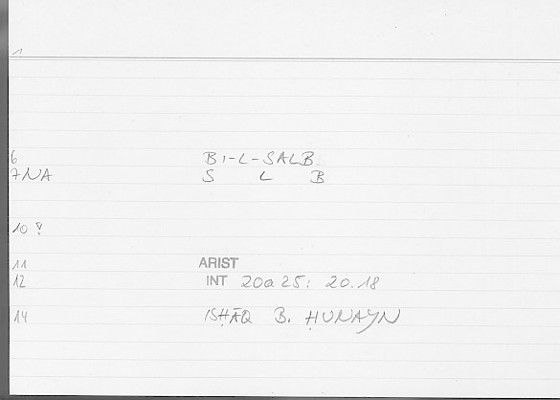 1
6 BI-L-SALB
7NA S L B
10 ?
11 ARIST
12 INT 20a25; 20.18
14 ISḤĀQ B. ḤUNAYN